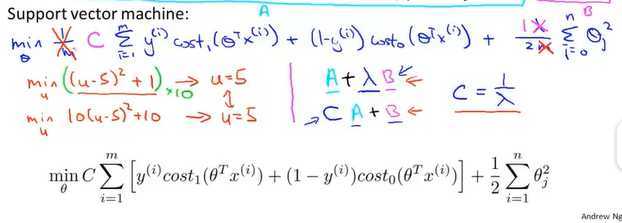 Support vector machine:
A
B
min_θ 1/m C Σ_{i=1}^{m} y^(i) cost₁(θᵀx^(i)) + (1-y^(i)) cost₀(θᵀx^(i)) + 1λ/2m Σ_{i=0}^{n} θ_j²
min_u ((u-5)² + 1) ×10 → u=5
A + λB ←
C = 1/λ
min_u 10(u-5)²+10 → u=5
→ CA + B ←
min_θ C Σ_{i=1}^{m} [y^(i) cost₁(θᵀx^(i)) + (1 − y^(i)) cost₀(θᵀx^(i))] + 1/2 Σ_{i=1}^{n} θ_j²
Andrew Ng